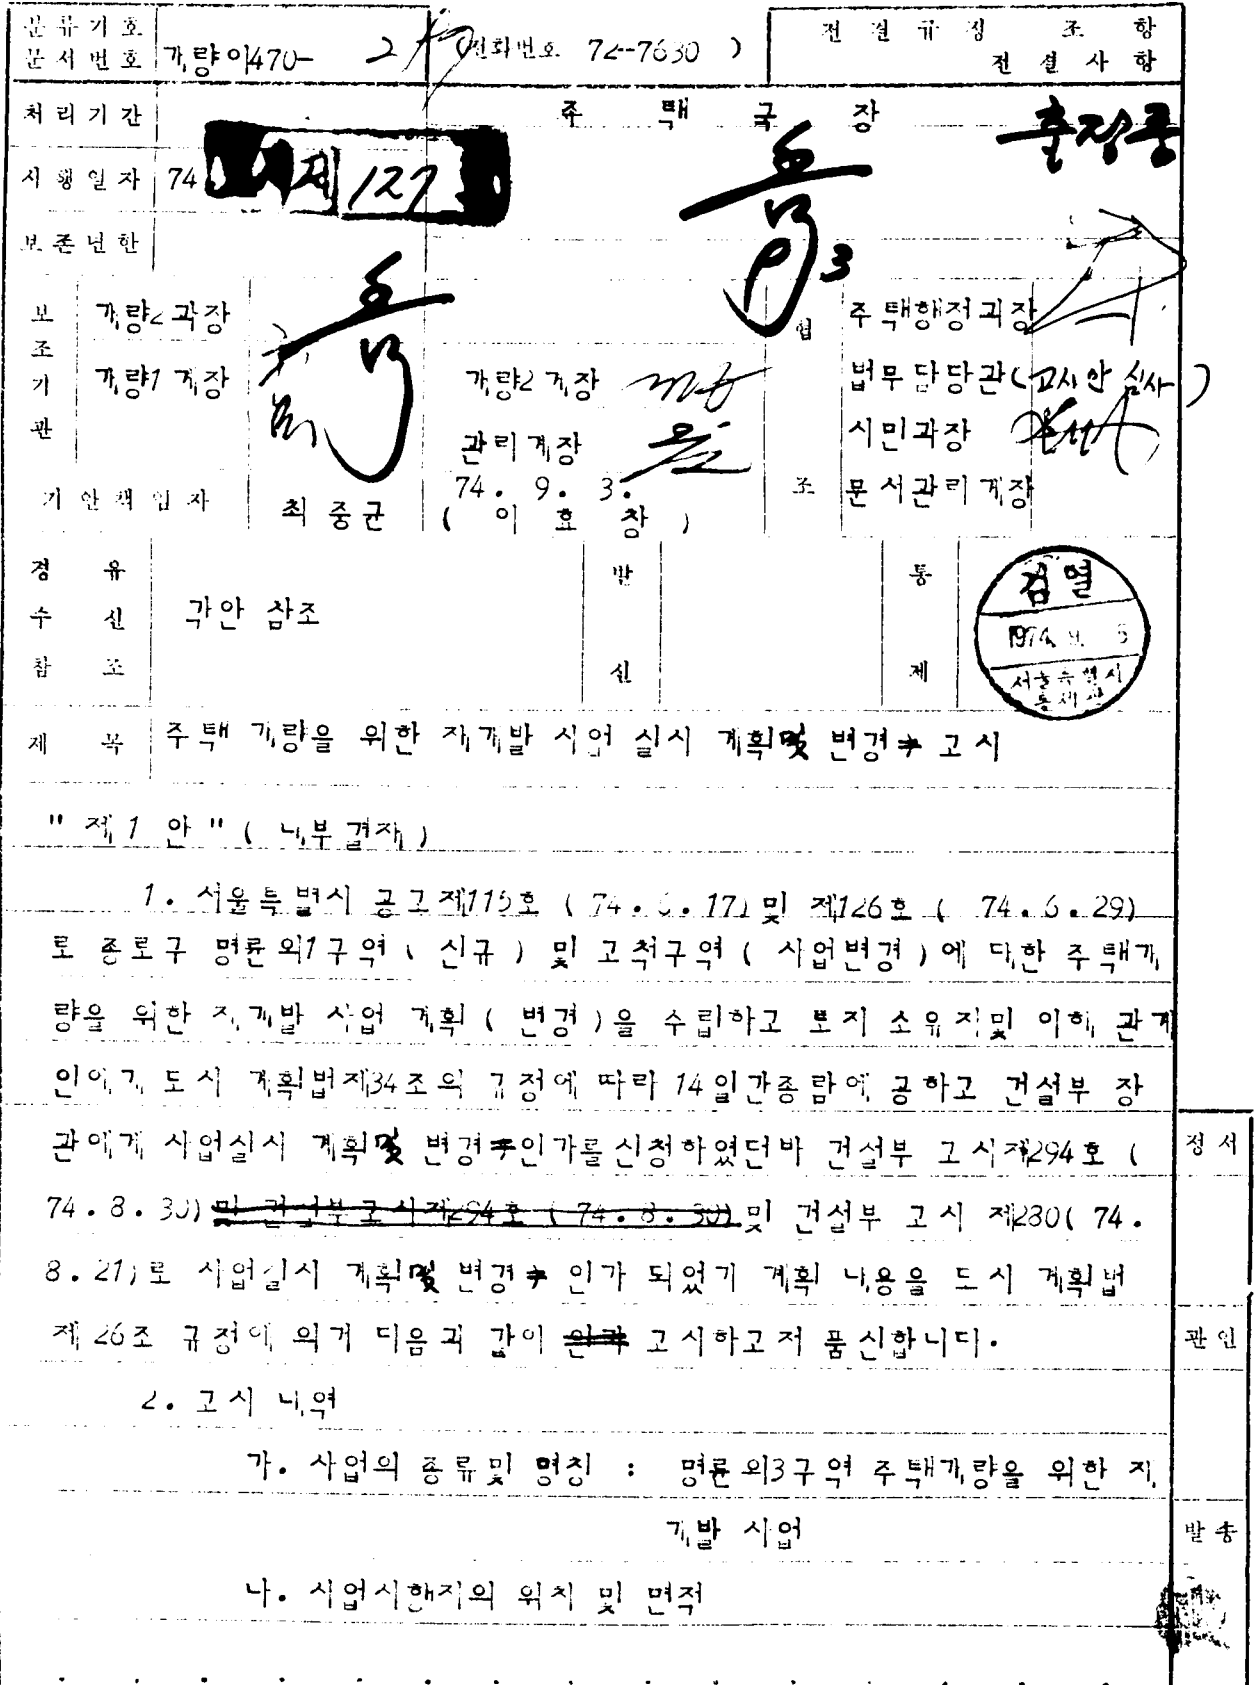 분류기호
문서번호 개량이470- (전화번호 72-7630 )
전결규정 조 항
전결사항
처리기간
주 택 국 장
출장중
시행일자 74
제 127
보존년한
보조기관
개량2과장
개량1계장
개량2계장
관리계장
협조
주택행정과장
법무담당관(고시안 심사)
시민과장
문서관리계장
기안책임자 최중균 ( 이 효 창 )
74. 9. 3.
경유
수신 각안 참조
참조
발신
통제
검열
1974. 9. 6
서울특별시
통제관
제목 주택 개량을 위한 재개발 사업 실시 계획및 변경 고시
" 제1 안 " ( 내부결재 )
1. 서울특별시 공고제115호 ( 74.6.17)및 제126호 ( 74.6.29)
로 종로구 명륜외1구역 ( 신규 ) 및 고척구역 ( 사업변경 )에 대한 주택개
량을 위한 재개발 사업 계획 ( 변경 )을 수립하고 토지 소유자및 이해 관계
인에게 도시 계획법제34조의 규정에 따라 14일간종람에 공하고 건설부 장
관에게 사업실시 계획및 변경 인가를신청하였던바 건설부 고시제294호 (
74.8.30) 및 건설부고시제294호 ( 74.8.30) 및 건설부 고시 제280( 74.
8.21)로 사업실시 계획및 변경 인가 되었기 계획 내용을 도시 계획법
제26조 규정에 의거 다음과 같이 고시하고저 품신합니다.
2. 고시 내역
가. 사업의 종류및 명칭 : 명륜외3구역 주택개량을 위한 재
개발 사업
나. 사업시행지의 위치 및 면적
정서
관인
발송